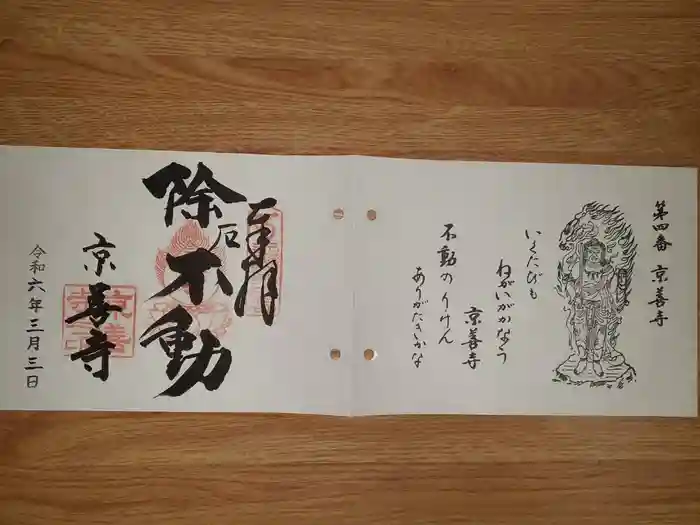 第四番 京善寺
いくたびも
ねがいがかなう
京善寺
不動のりけん
ありがたきかな
奉拝
除石不動
京善寺
令和六年三月三日